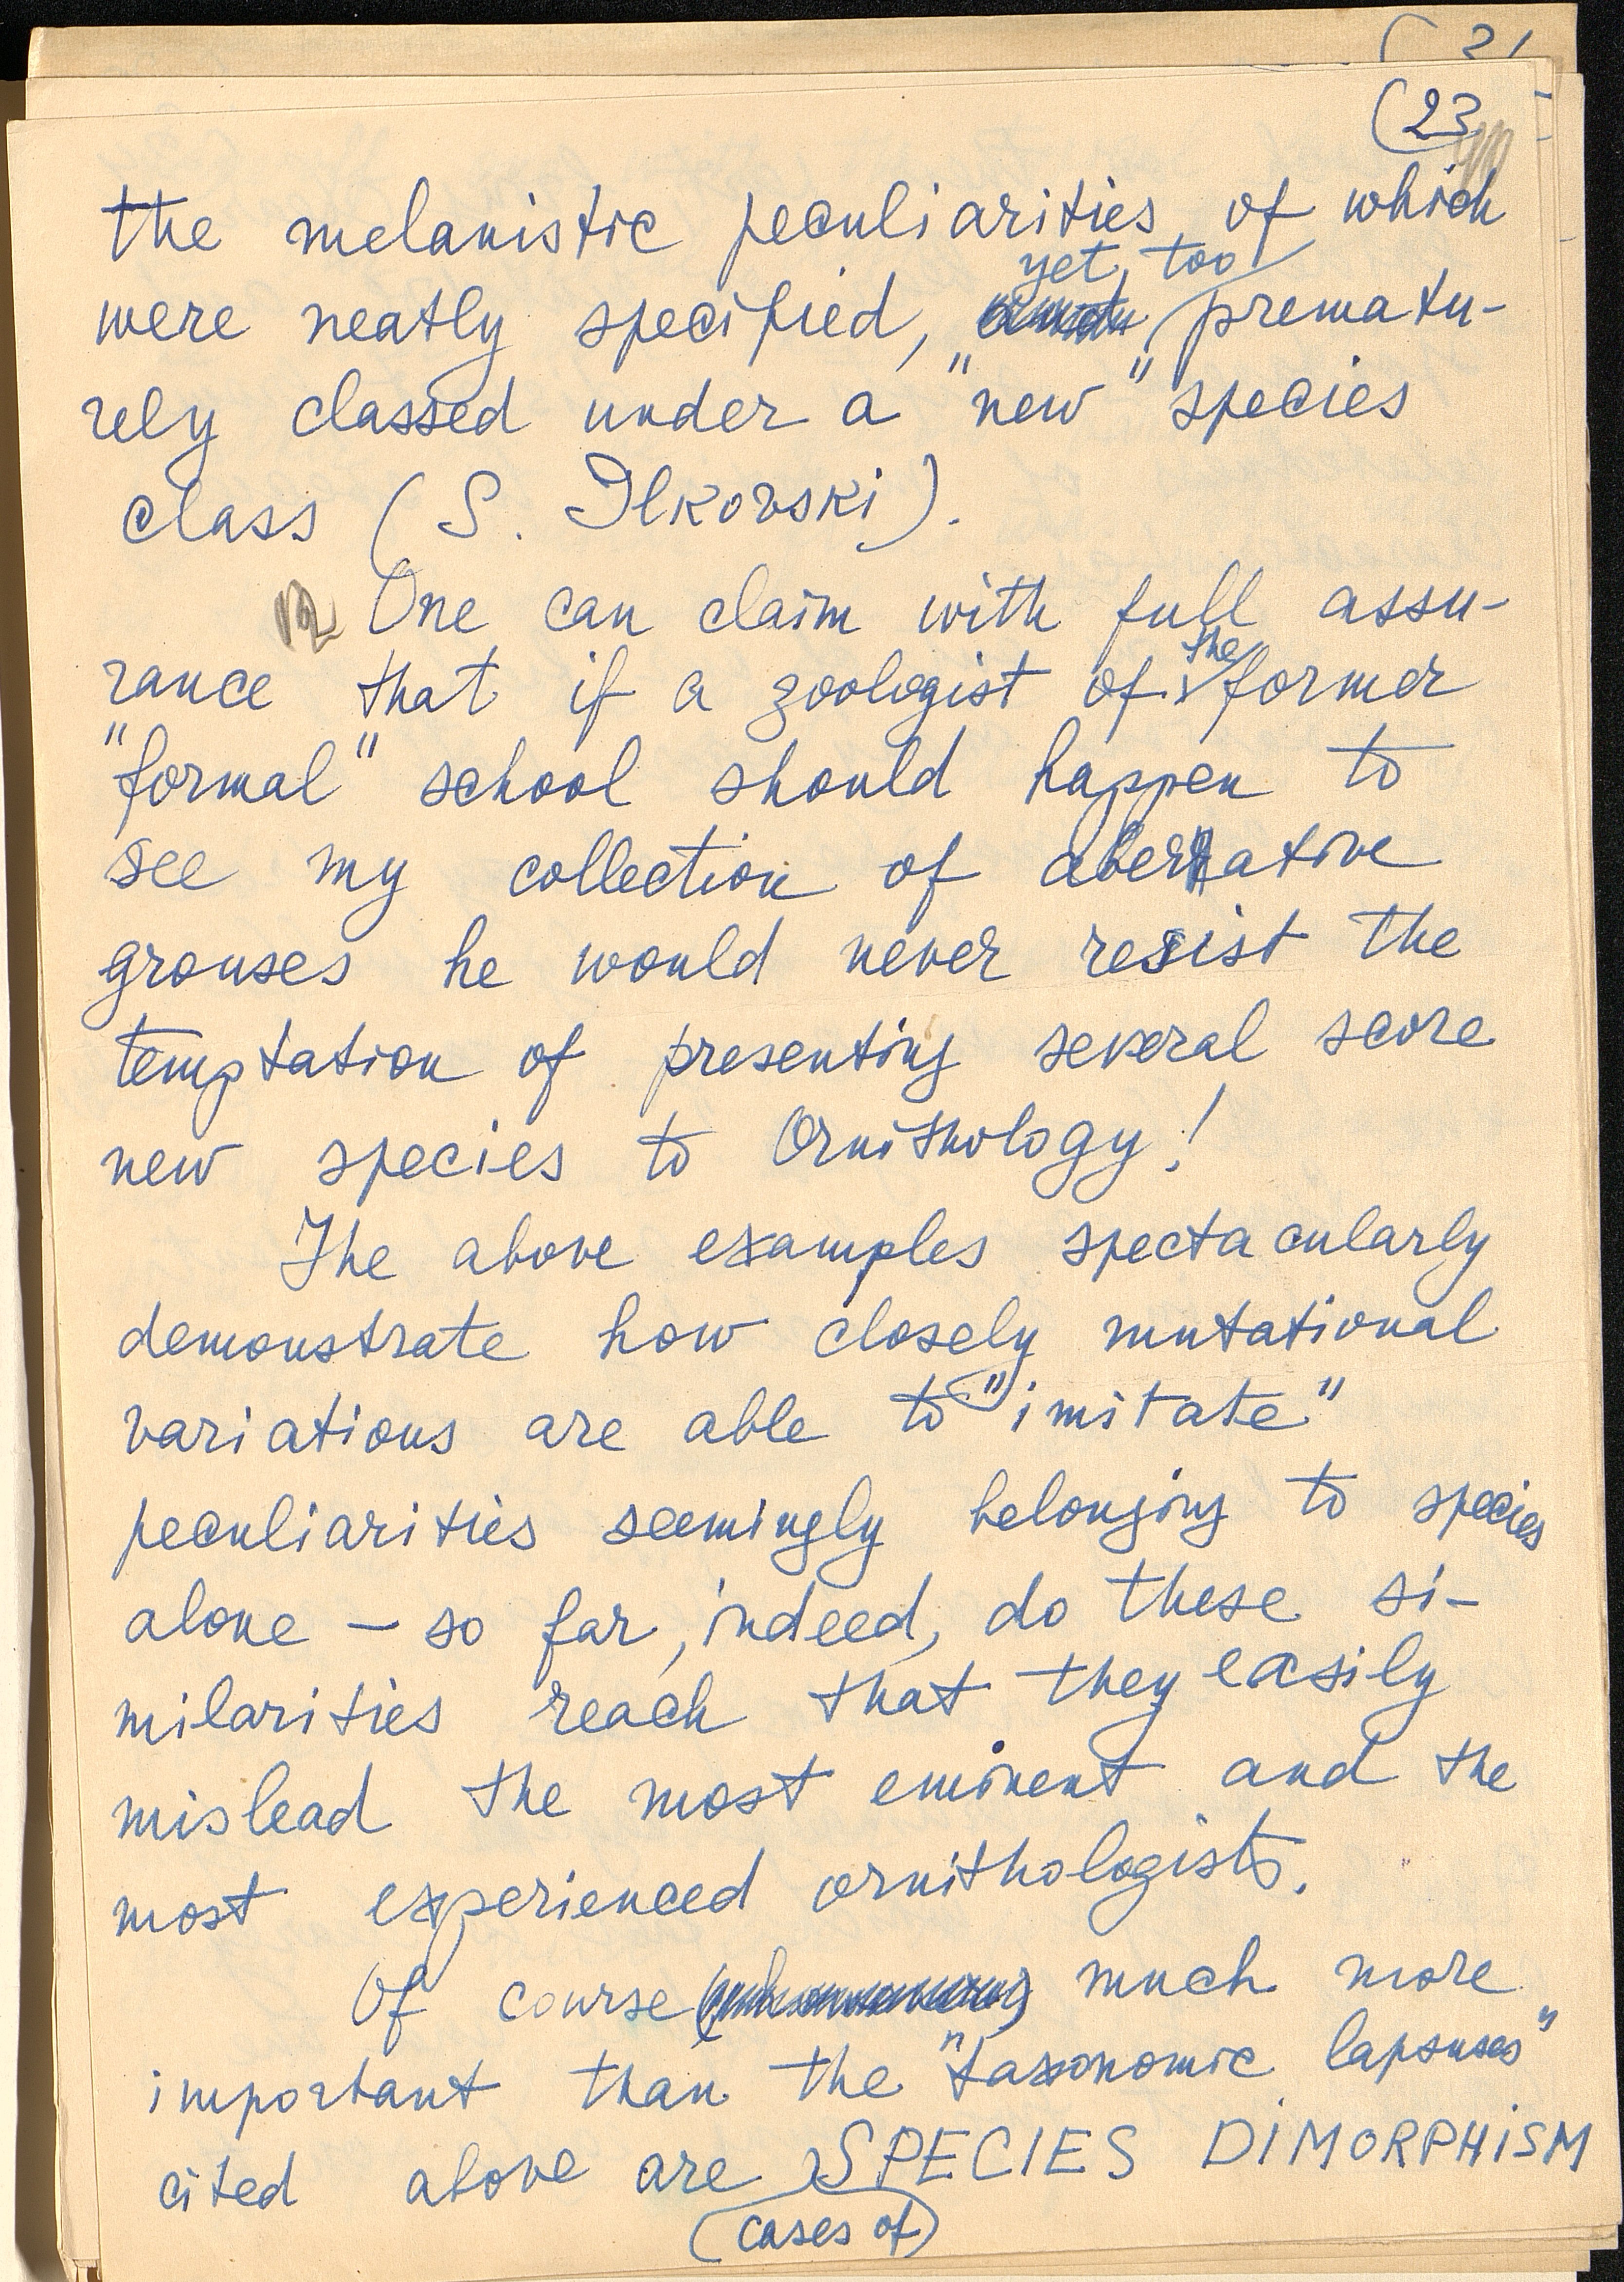 ( 21
(23
the melanistic peculiarities of which
yet, too
were neatly specified, prematu-
rely classed under a "new" species
class (S. Ilkovski).
12 One can claim with full assu-
rance that if a zoologist of the former
"formal" school should happen to
see my collection of aberrative
grouses he would never resist the
temptation of presenting several score
new species to Ornithology!
The above examples spectacularly
demonstrate how closely mutational
variations are able to "imitate"
peculiarities seemingly belonging to species
alone – so far, indeed, do these si-
milarities reach that they easily
mislead the most eminent and the
most experienced ornithologists.
Of course much more
important than the "taxonomic lapsuses"
cited above are SPECIES DIMORPHISM
(cases of)